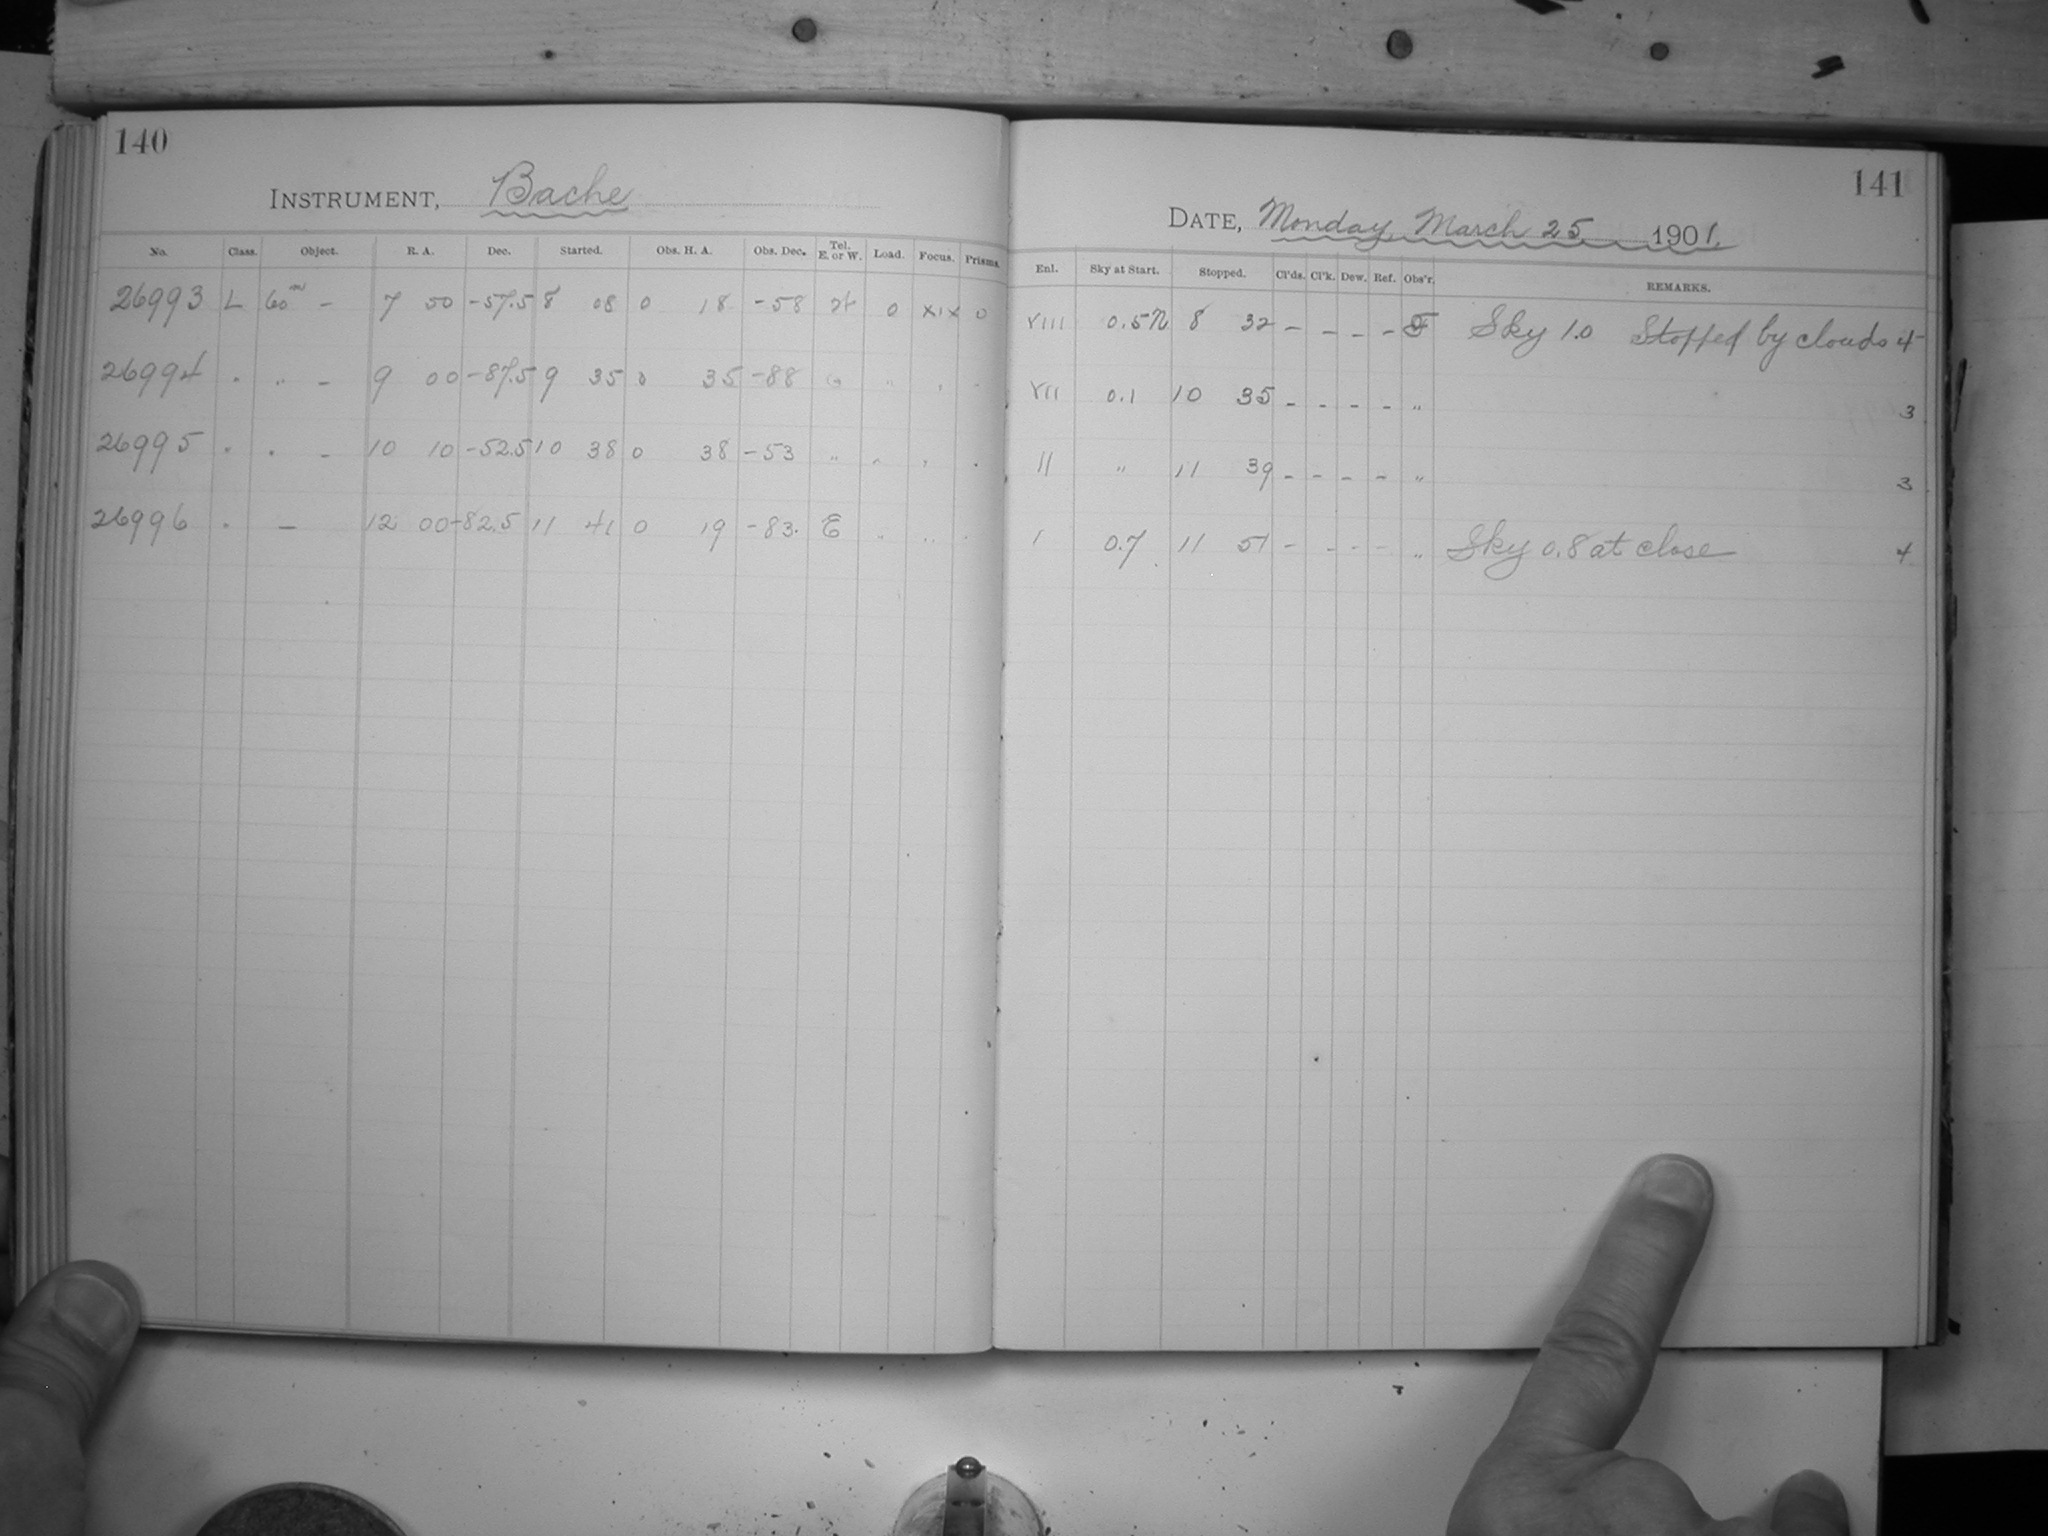 140
INSTRUMENT, Bache
No. Class. Object. R. A. Dec. Started. Obs. H. A. Obs. Dec. Tel. E. or W. Load. Focus. Prisms.
26993 L 60m — 7 50 -57.5 8 08 0 18 -58 0 XIX 0
26994 " " — 9 00 -87.5 9 35 0 35 -88 " " "
26995 " " — 10 10 -52.5 10 38 0 38 -53 " " " "
26996 " — 12 00 -82.5 11 41 0 19 -83. E " " "
141
DATE, Monday, March 25 1901.
Enl. Sky at Start. Stopped. Cl'ds. Cl'k. Dew. Ref. Obs'r. REMARKS.
VIII 0.5 8 32 — — — — F Sky 1.0 Stopped by clouds 4
VII 0.1 10 35 — — — — " 3
II " 11 39 — — — — " 3
I 0.7 11 51 — — — — " Sky 0.8 at close 4